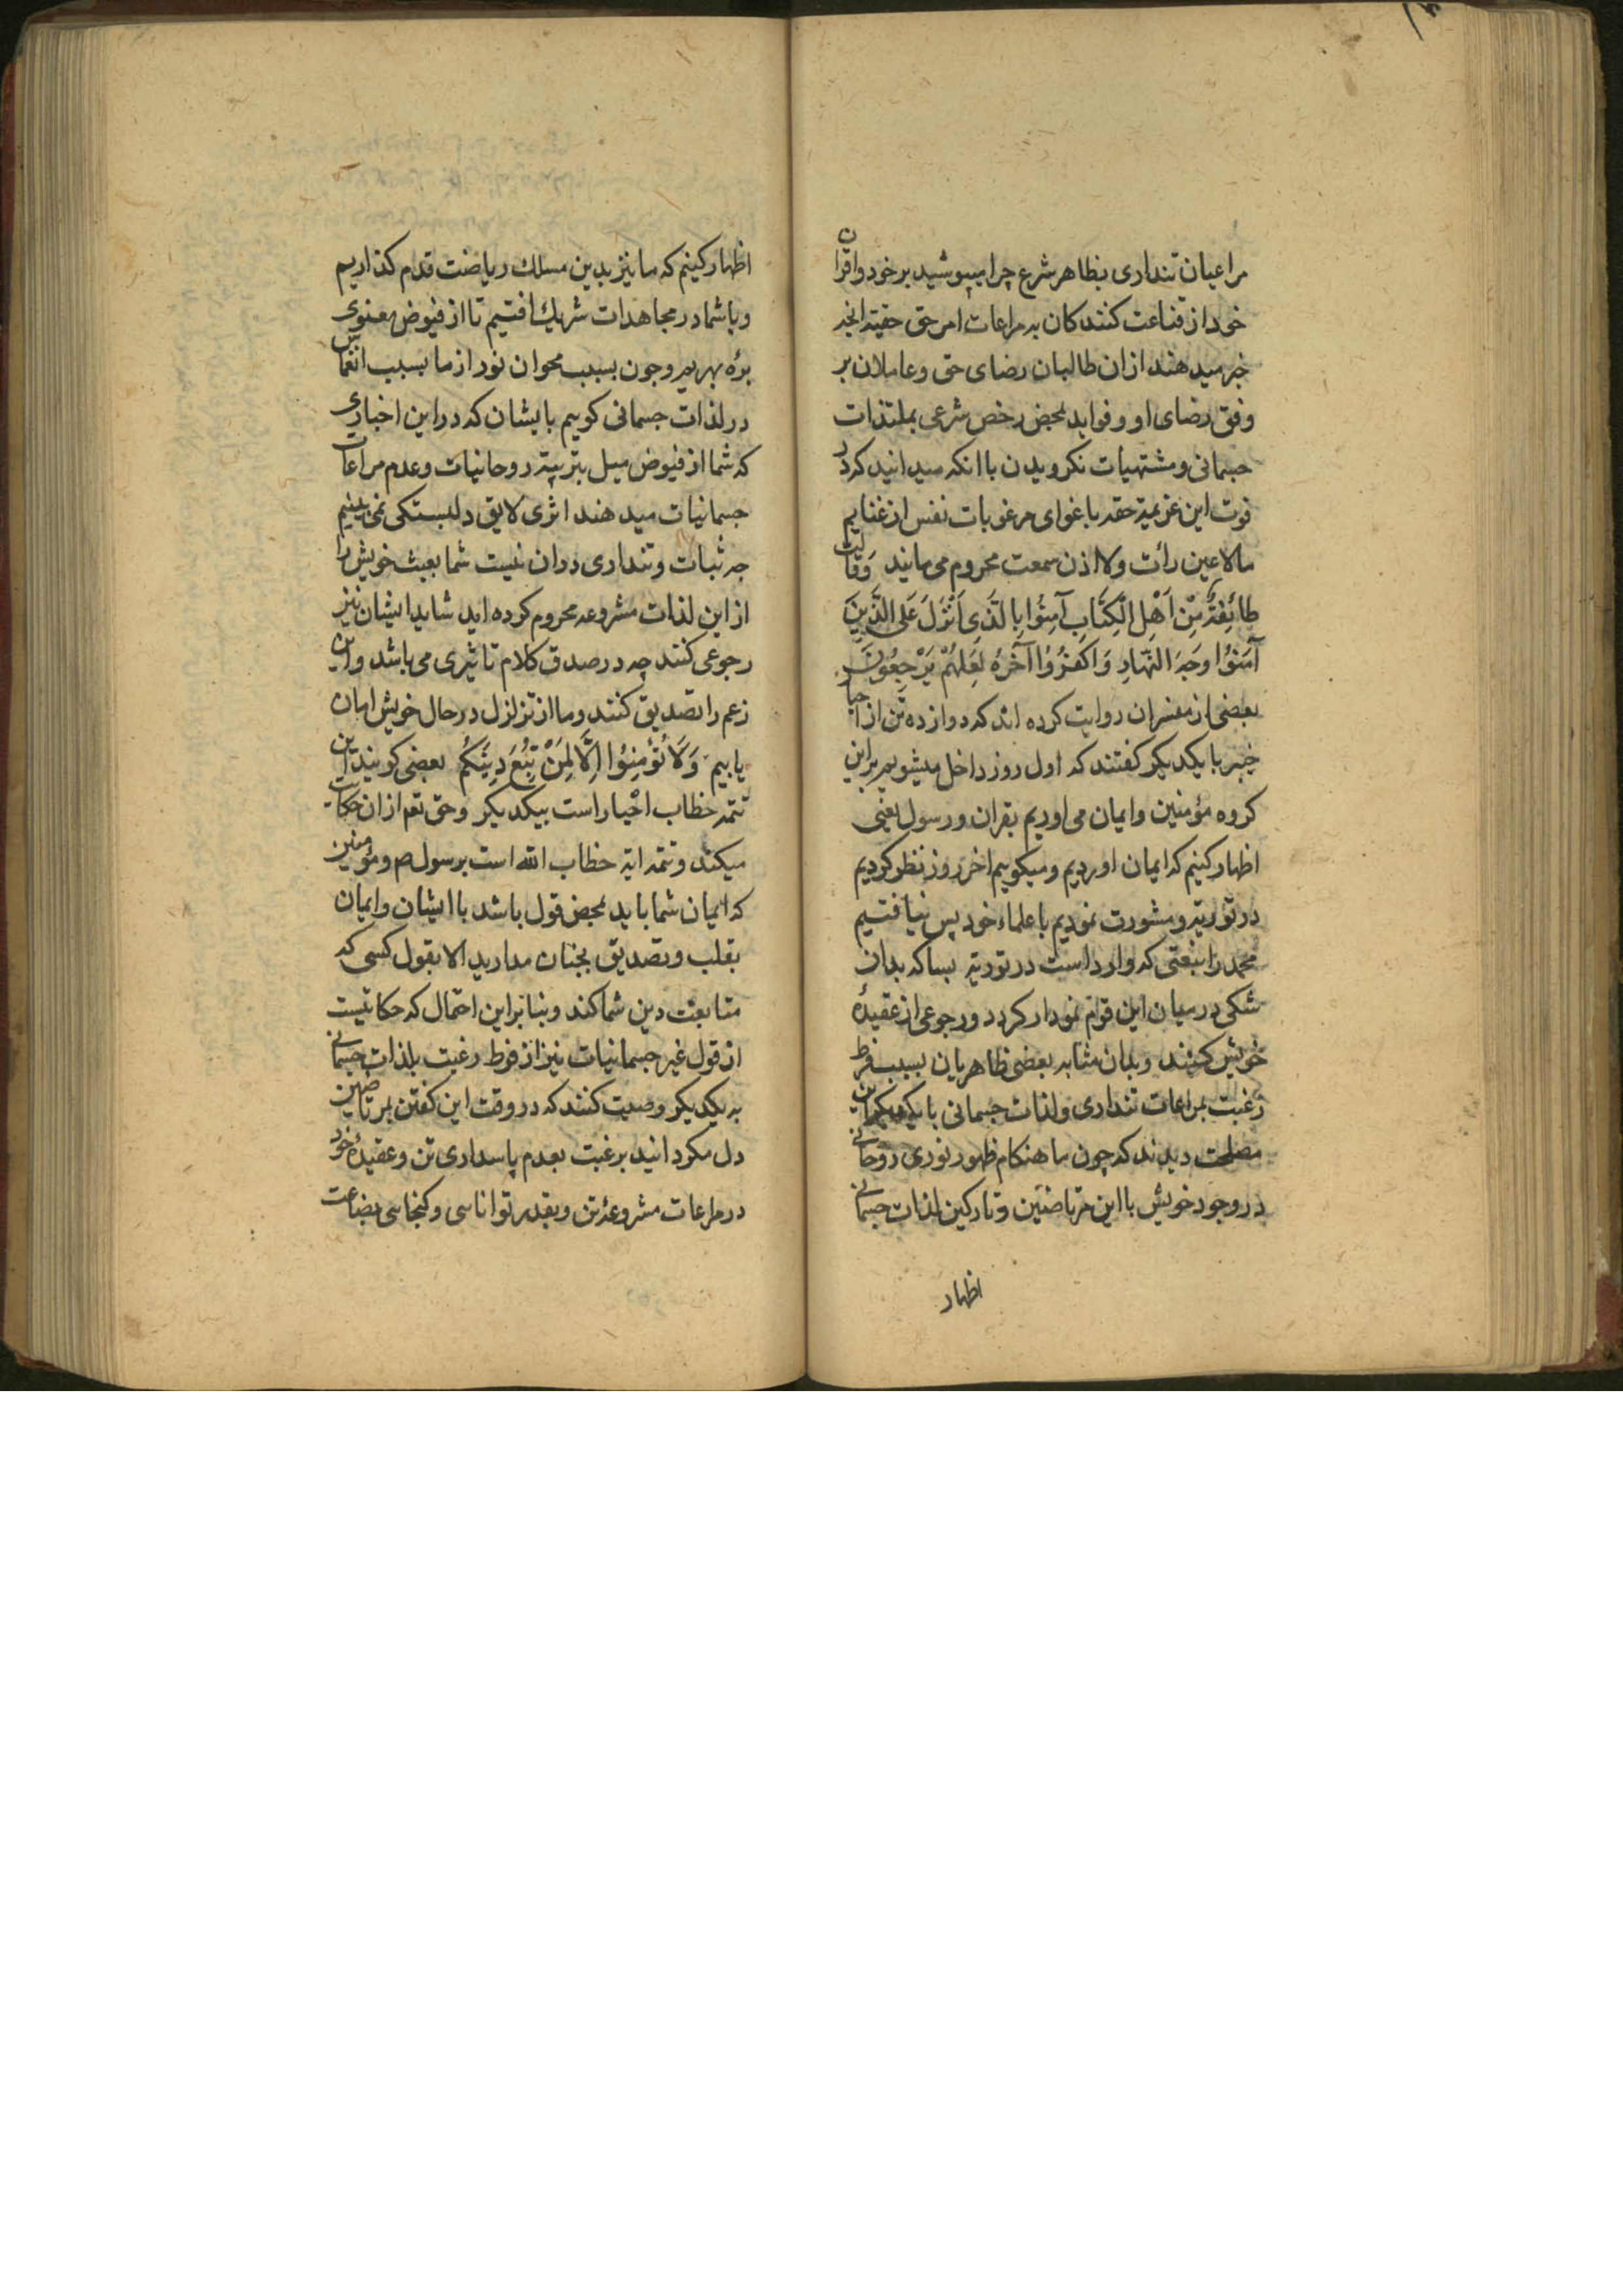 مراعیان تنداری بظاهر شرع چرا میپوشید بر خود واقران
خود از قناعت کنندکان به مراعات امر حق حقیة انچه
خبر میدهند ازان طالبان رضای حق وعاملان بر
وفق رضای او وفواید لمحض رخص شرعی بملتذات
جسمانی ومشتهیات نکرویدن با انکه میدانید که در
فوت این عزیمة حقه باغوای مرغوبات نفس از غنایم
مالاعین رأت ولا اذن سمعت محروم می مانید وَقالَت
طائِفَةٌ مِّن اَهْلِ الْكِتَابِ آمِنُوا بِالَّذِی اُنْزِلَ عَلَی الَّذِینَ
آمَنُوا وَجْهَ النَّهَارِ وَاكْفُرُوا آخِرَهُ لَعَلَّهُمْ یَرْجِعُونَ
بعضی از مفسران روایت کرده اند که دوازده تن از احبار
خیبر با یکدیکر کفتند که اول روز داخل میشویم براین
کروه مؤمنین وایمان می اوریم بقران ورسول یعنی
اظهار کینم که ایمان اوردیم ومیکوییم اخر روز نظر کردیم
در توریة ومشورت نمودیم با علماء خود پس نیافتیم
محمد را بنعتی که وارد است در توریة بسا که بدان
شکی در میان این قوام نمودار کردد ورجوعی از عقیدهٔ
خویش کنند وبدان مثابه بعضی ظاهریان بسبب فرط
رغبت بمراعات تنداری ولذات جسمانی با یکدیکر این
مصلحت دیدند که چون ما هنکام ظهور نوری روحانی
در وجود خویش با این مرتاضین وتارکین لذات جسمانی
اظهار
اظهار کینم که ما نیز بدین مسلك ریاضت قدم کذاریم
وباشما در مجاهدات شریك افتیم تا از فیوض معنوی
بره بریم وچون بسبب محو ان نور از ما بسبب انغماس
در لذات جسمانی کوییم بایشان که در این اخباری
که شما از فیوض میل بتربیة روحانیات وعدم مراعات
جسمانیات میدهند اثری لایق دلبستکی نمی بینیم
چه ثبات وتنداری دران نیست شما بعبث خویش را
از این لذات مشروعه محروم کرده اید شاید ایشان نیز
رجوعی کنند چه در صدق کلام تاثیری می باشد واین
زعم را تصدیق کنند وما از تزلزل در حال خویش امان
یابیم وَلَا تُؤْمِنُوا اِلَّا لِمَنْ تَبِعَ دِینَكُمْ بعضی کویند این
تتمه خطاب احبار است بیکدیکر وحق تعم ازان حکایت
میکند وتتمه ایة خطاب الله است برسول ص ومؤمنین
که ایمان شما باید لمحض قول باشد با ایشان وایمان
بقلب وتصدیق بجنان مدارید الا بقول کسی که
متابعت دین شما کند وبنا بر این احتمال که حکایتیست
از قول غیر جسمانیات نیز از فرط رغبت بلذات جسمانی
به یکدیکر وصیت کنند که در وقت این کفتن بمرتاضین
دل مکردانید برغبت بعدم پاسداری تن وعقیدهٔ خود
در مراعات مشروعهٔ تن وبقدر تواناسی وکنجاسی بضاعت